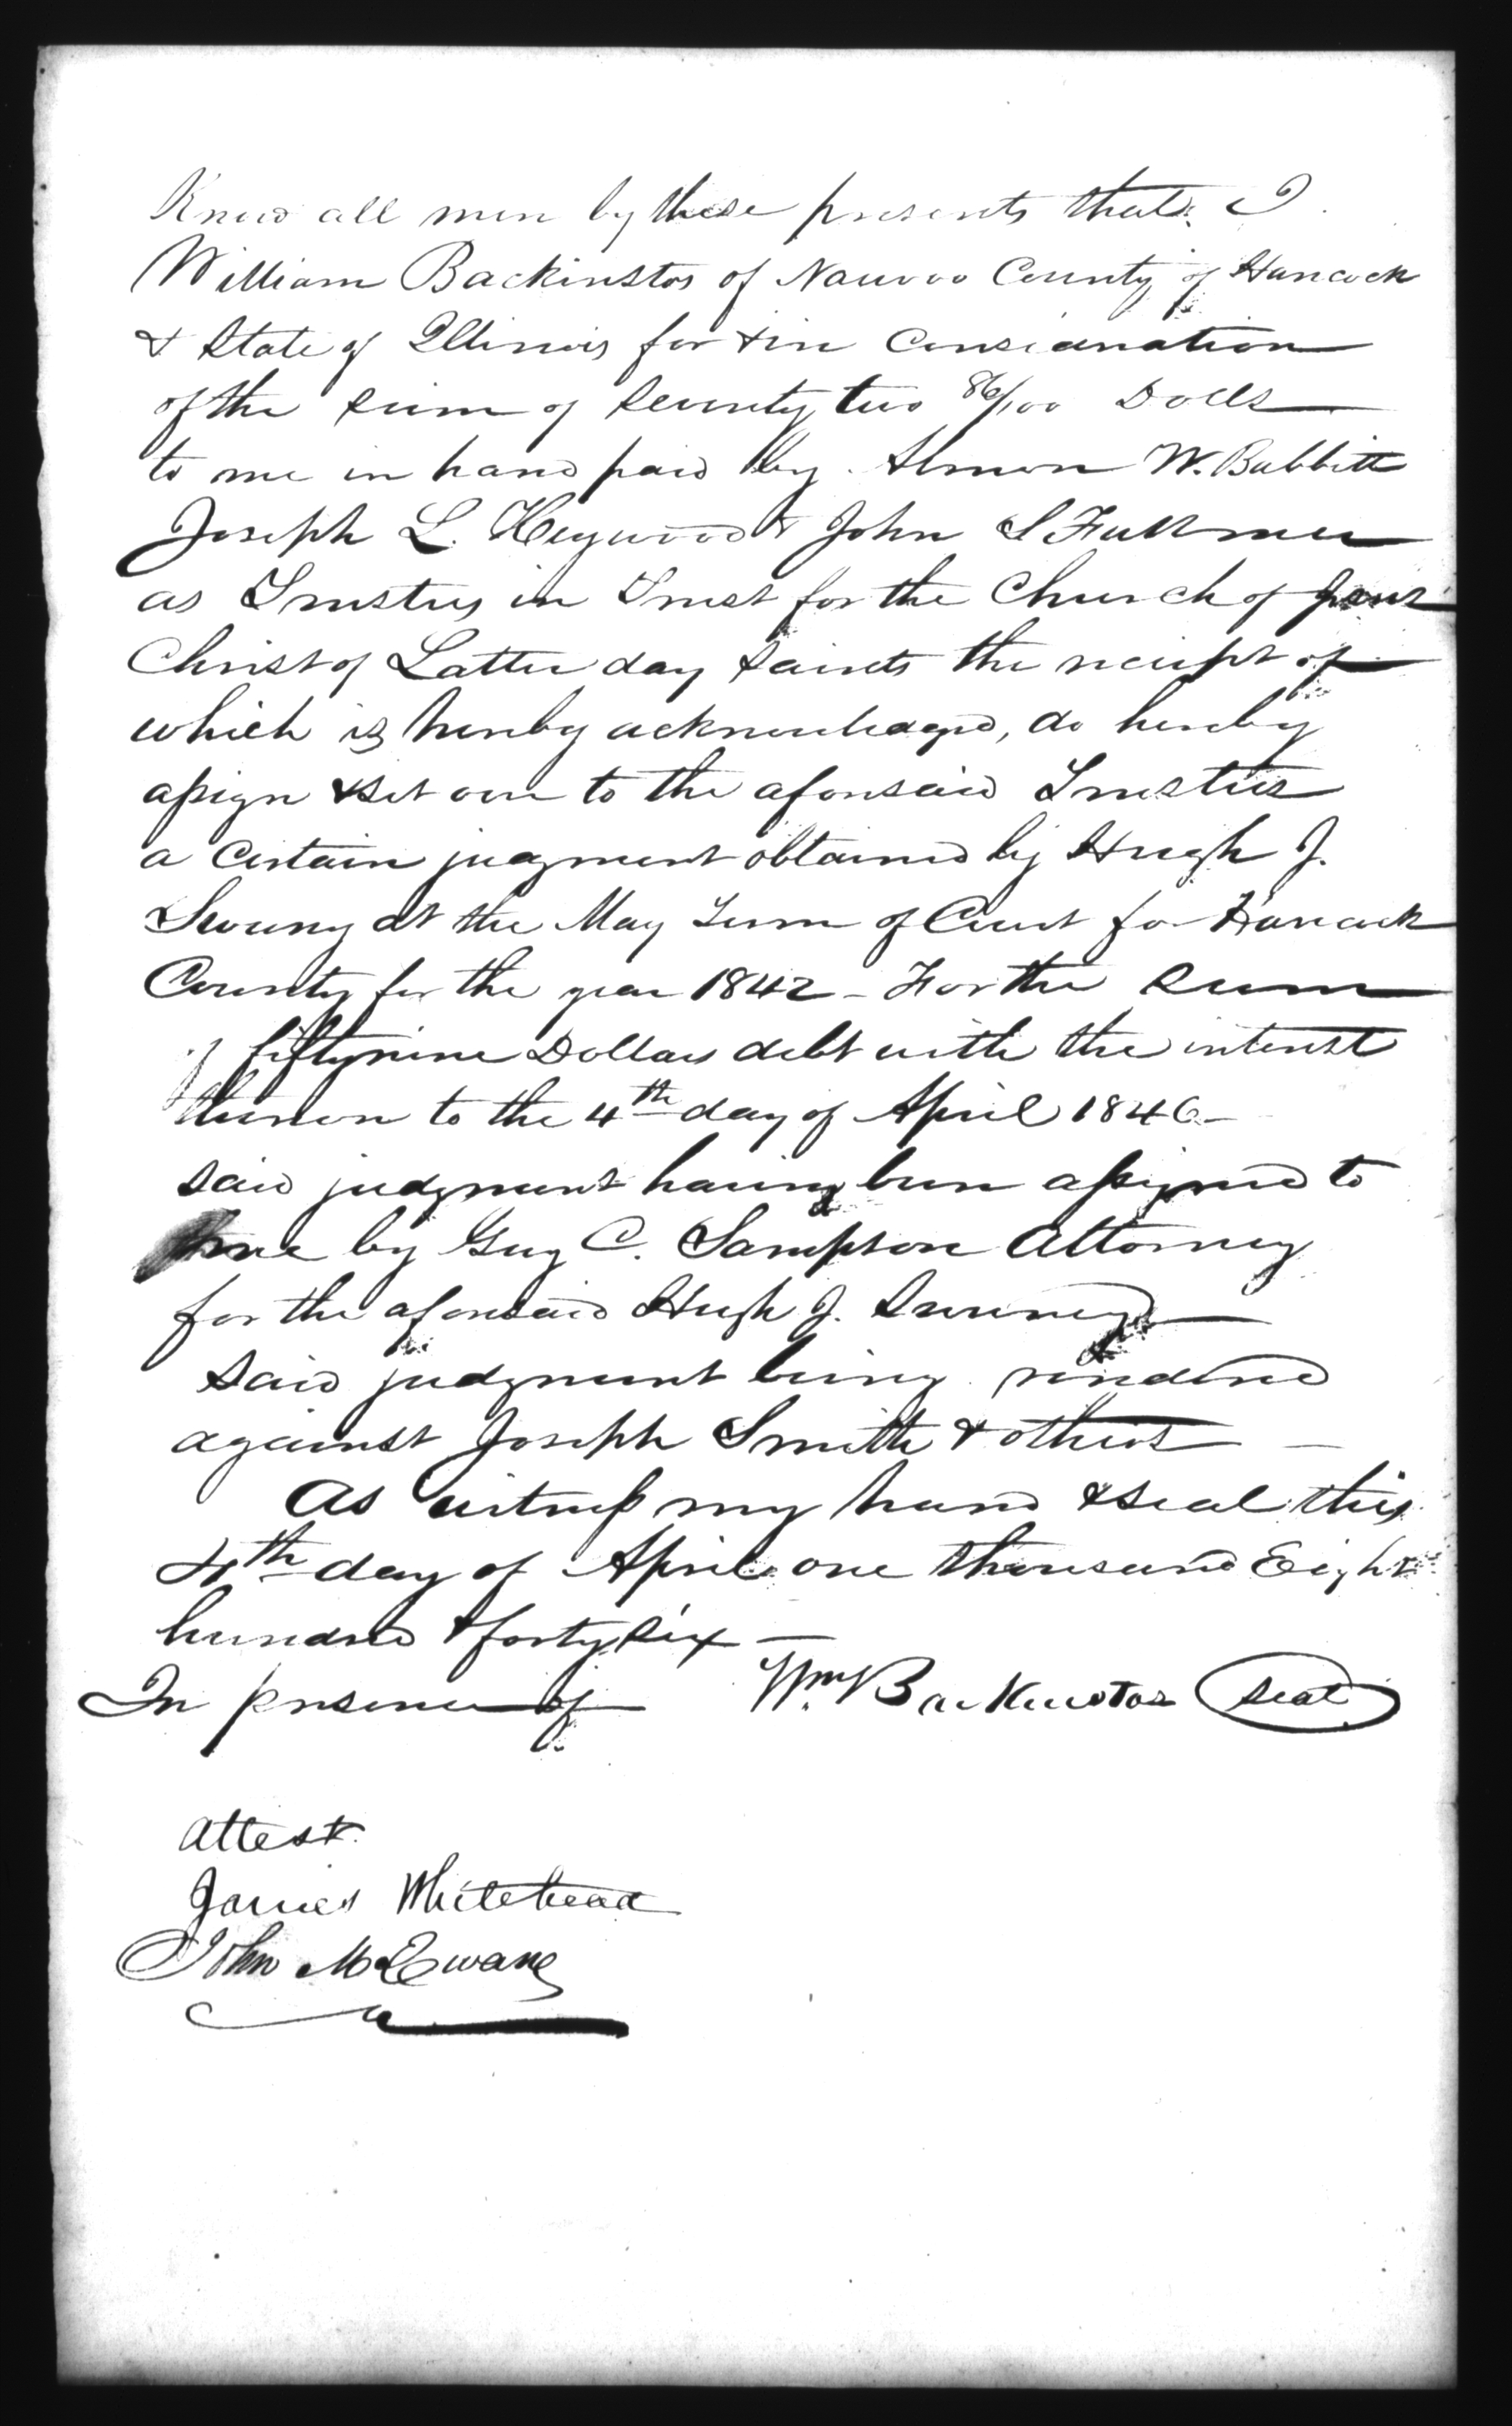 Know all men by these presents that I
William Backinstos of Nauvoo County of Hancock
& State of Illinois for & in Consideration
of the sum of Seventy two 86/100 Dolls
to me in hand paid by Almon W. Babbitt
Joseph L. Heywood & John S Fullmer
as Trustees in Trust for the Church of Jesus
Christ of Latter day Saints the receipt of
which is hereby acknowledged, do hereby
assign & set over to the aforesaid Trustees
a Certain judgment obtained by Hugh J.
Sweeny at the May Term of Court for Hancock
County for the year 1842 - For the Sum
of fiftynine Dollars debt with the interest
thereon to the 4th day of April 1846 -
said judgment having been assigned to
me by Guy C. Sampson Attorney
for the aforesaid Hugh J. Sweeney
said judgment being rendered
against Joseph Smith & others
As witness my hand & seal this
4th day of April one thousand Eight
hundred & forty six
In presence of Wm Backenstos Seal
Attest
James Whitehead
John M. Ewans